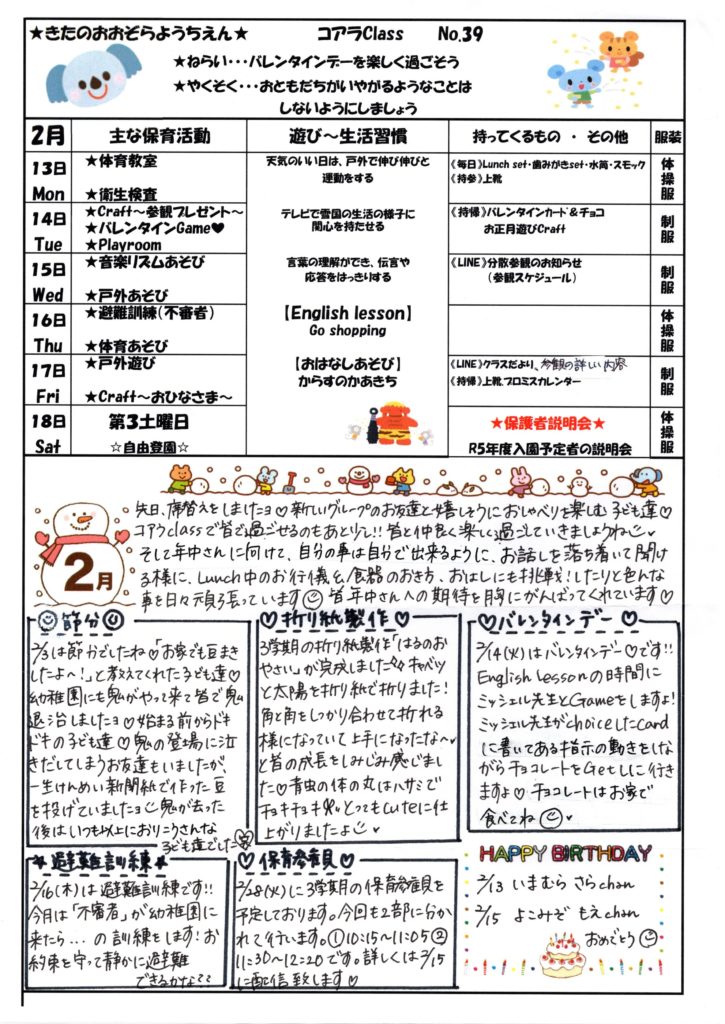 ★きたのおおぞらようちえん★ コアラClass No.39
★ねらい・・・バレンタインデーを楽しく過ごそう
★やくそく・・・おともだちがいやがるようなことは
しないようにしましょう
2月 主な保育活動 遊び～生活習慣 持ってくるもの ・ その他 服装
13日 Mon
★体育教室
★衛生検査
天気のいい日は、戸外で伸び伸びと
運動をする
《毎日》Lunch set・歯みがきset・水筒・スモック
《持参》上靴
体操服
14日 Tue
★Craft～参観プレゼント～
★バレンタインGame♥
★Playroom
テレビで雪国の生活の様子に
関心を持たせる
《持帰》バレンタインカード＆チョコ
お正月遊びCraft
制服
15日 Wed
★音楽リズムあそび
★戸外あそび
言葉の理解ができ、伝言や
応答をはっきりする
《LINE》分散参観のお知らせ
(参観スケジュール)
制服
16日 Thu
★避難訓練(不審者)
★体育あそび
【English lesson】
Go shopping
体操服
17日 Fri
★戸外遊び
★Craft～おひなさま～
【おはなしあそび】
からすのかあきち
《LINE》クラスだより、参観の詳しい内容
《持帰》上靴、プロミスカレンダー
制服
18日 Sat
第3土曜日
☆自由登園☆
★保護者説明会★
R5年度入園予定者の説明会
体操服
2月
先日、席替えをしましたョ♡新しいグループのお友達と嬉しそうにおしゃべりを楽しむ子ども達♡
コアラclassで皆で過ごせるのもあと少し!!皆と仲良く楽しく過ごしていきましょうね
そして年中さんに向けて、自分の事は自分で出来るように、お話しを落ち着いて聞け
る様に、Lunch中のお行儀&食器のおき方、おはしにも挑戦!したりと色んな
事を日々頑張っています 皆年中さんへの期待を胸にがんばってくれています♡
節分
2/3は節分でしたね「お家でも豆まき
したよ～!」と教えてくれた子ども達♡
幼稚園にも鬼がやって来て皆で鬼
退治しましたョ♡始まる前からドキ
ドキの子ども達♡鬼の登場に泣
きだしてしまうお友達もいましたが、
一生けんめい新聞紙で作った豆
を投げていましたョ 鬼が去った
後はいつも以上におりこうさんな
子ども達でした
♡折り紙製作♡
3学期の折り紙製作「はるのお
やさい」が完成しました キャベツ
と太陽を折り紙で折りました!
角と角をしっかり合わせて折れる
様になっていて上手になったな～
と皆の成長をしみじみ感じまし
た♡青虫の体の丸はハサミで
チョキチョキ とってもcuteに仕
上がりましたよ
♡バレンタインデー♡
2/14(火)はバレンタインデー♡です!!
English Lessonの時間に
ミッシェル先生とGameをしますよ!
ミッシェル先生がchoiceしたcard
に書いてある指示の動きをしな
がらチョコレートをGetしに行き
ますよ♡チョコレートはお家で
食べてね
★避難訓練★
2/16(木)は避難訓練です!!
今月は「不審者」が幼稚園に
来たら…の訓練をします!お
約束を守って静かに避難
できるかな??
♡保育参観♡
2/28(火)に3学期の保育参観を
予定しております。今回も2部に分か
れて行います。①10:15～11:05②
11:30～12:20です。詳しくは2/15
に配信致します♡
HAPPY BIRTHDAY
2/13 いまむら さらchan
2/15 よこみぞ もえchan
おめでとう